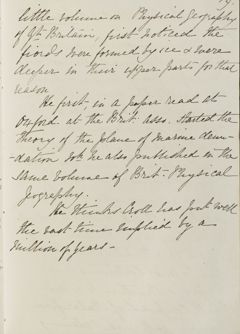 19.
little volume on Physical Geography
of Gt. Britain, first noticed the
fiords were formed by ice & were
deeper in their upper parts for that
reason
He first in a paper read at
Oxford at the Brit. Asso. started the
theory of the plane of marine denu-
dation wh. he also published in the
same volume of Brit. Physical
Geography.
He thinks Croll has put well
the vast time implied by a
million of years -